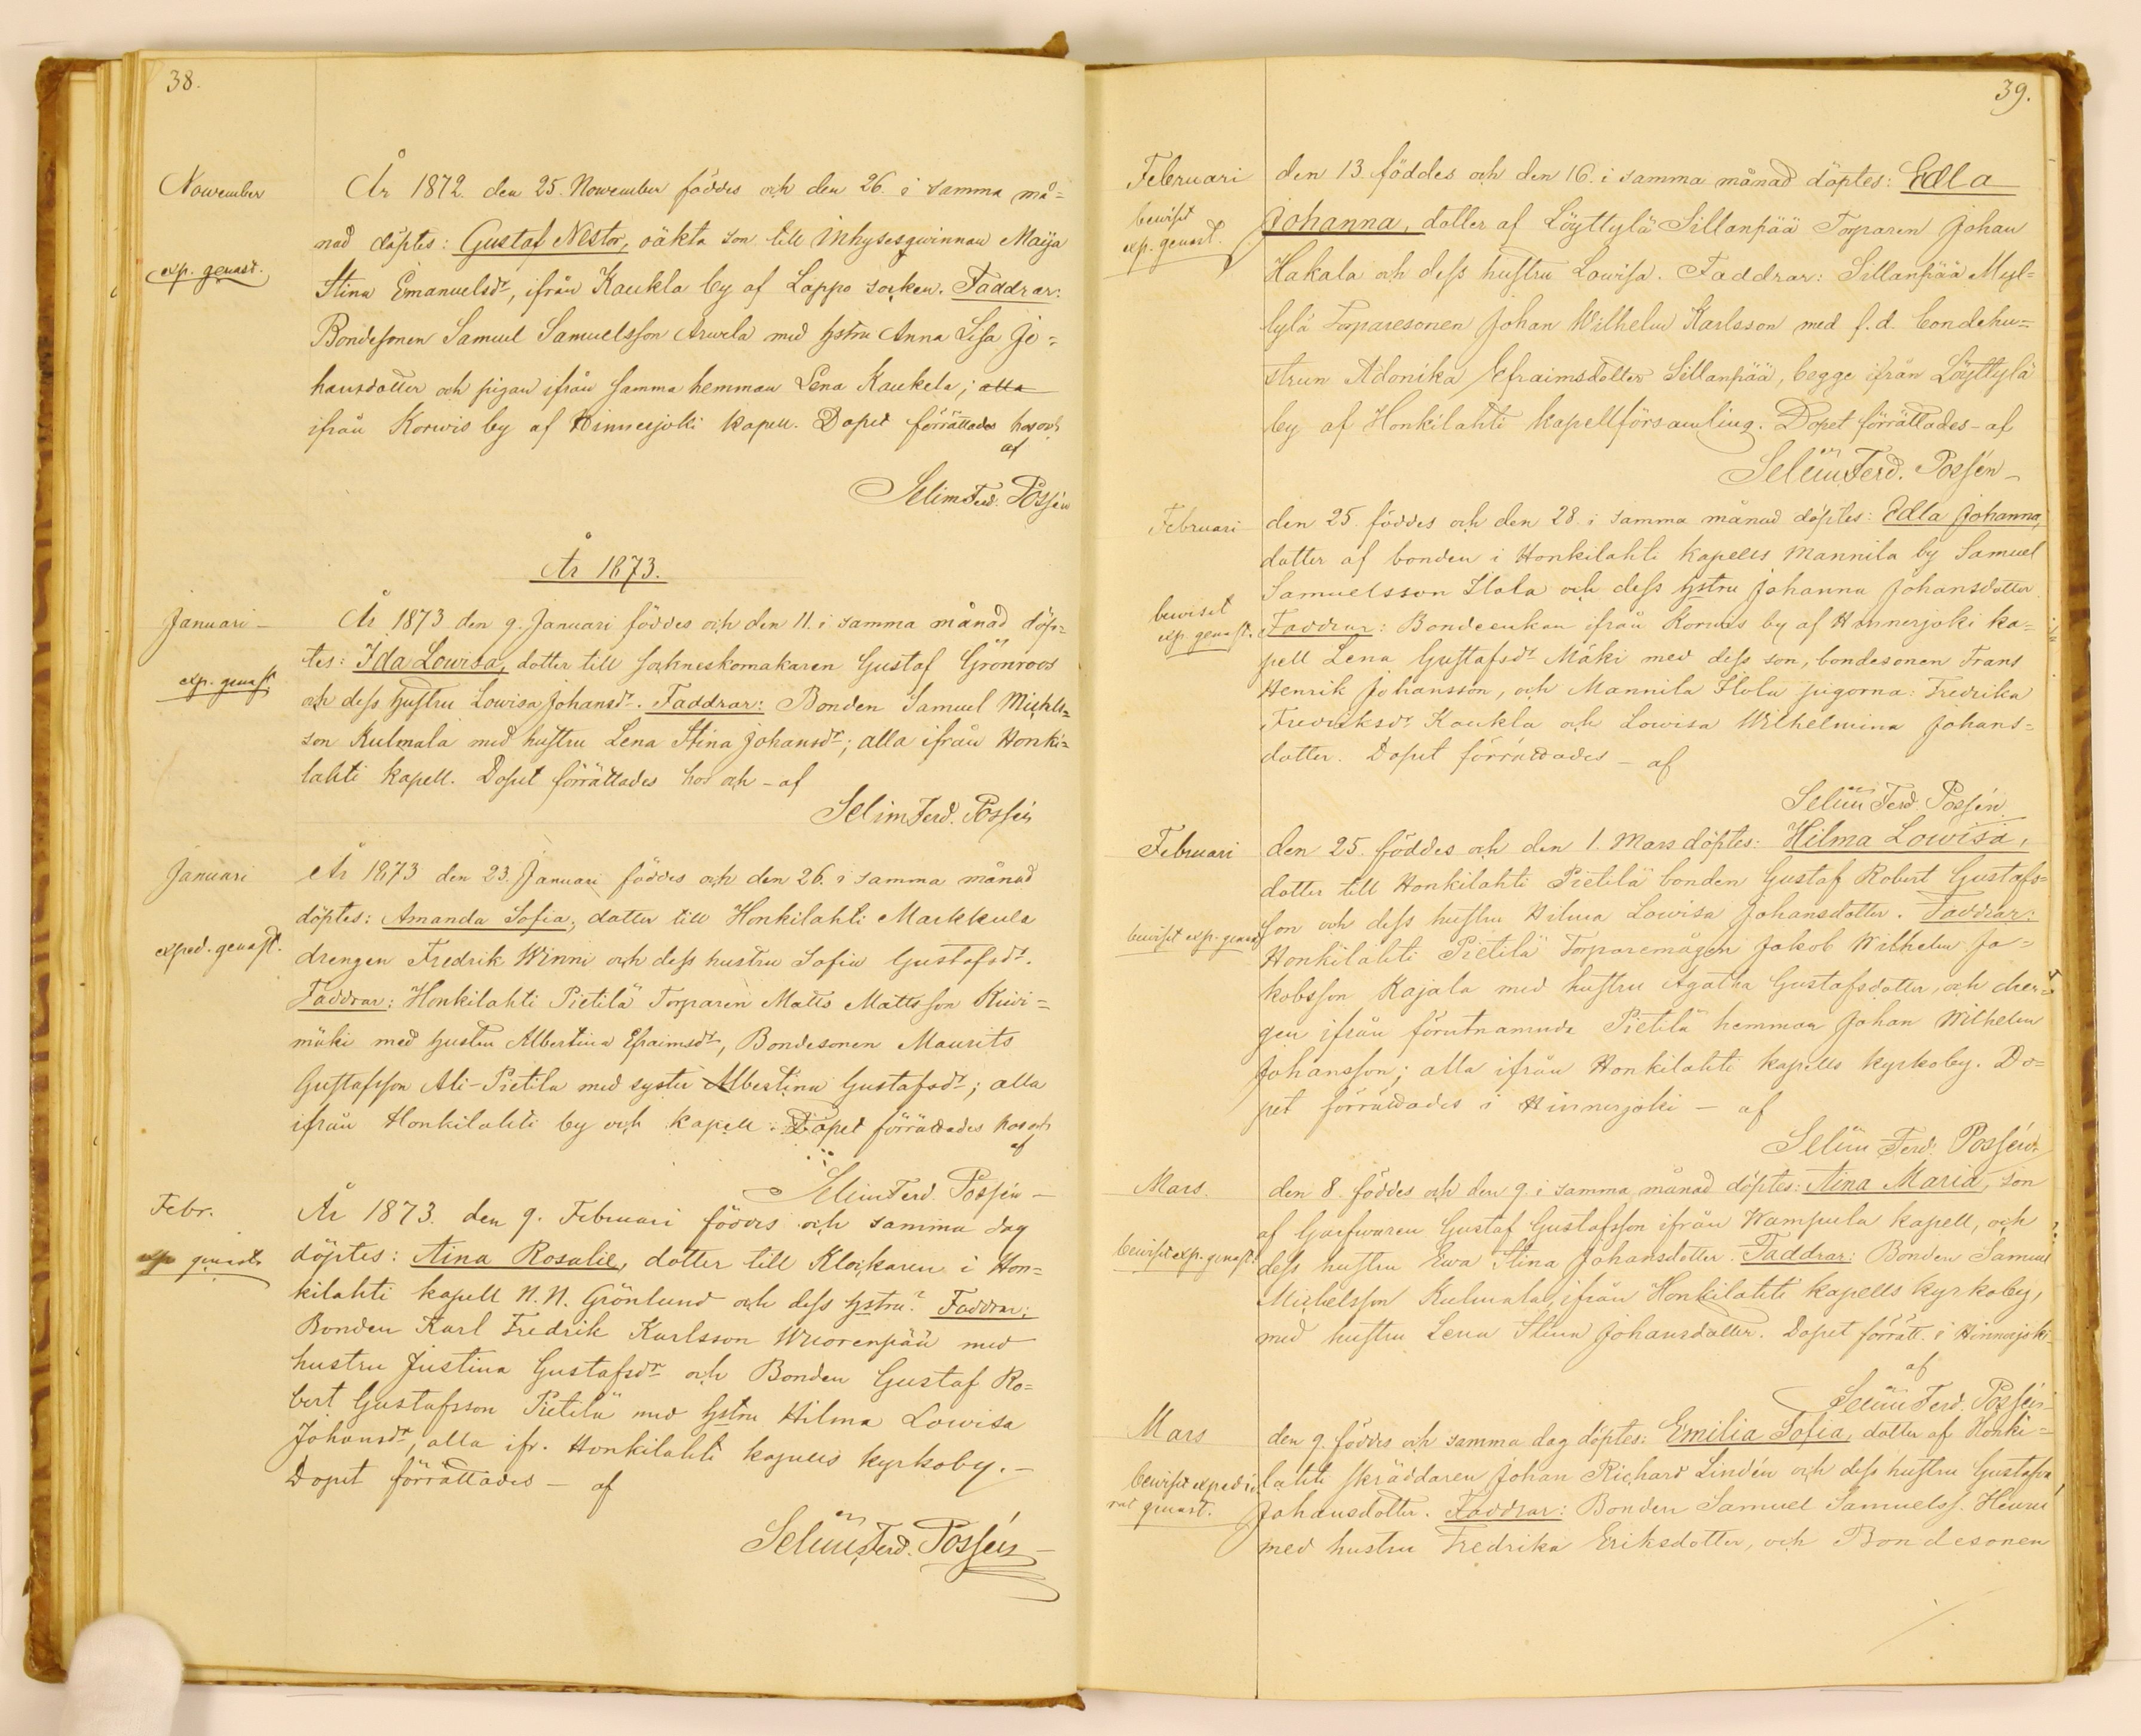 38.
Nowember
År 1872. den 25. Nowember föddes och den 26. i samma må=
nad döptes: Gustaf Nestor, oäkta son till Inhysesqwinnan Maija
exp. genast.
Stina Emanuelsdr, ifrån Kaukla by af Lappo socken. Faddrar:
Bondesonen Samuel Samuelsson Arwela med hstru Anna Lisa Jo=
hansdotter och pigan ifrån samma hemman Lena Kaukela; alla
ifrån Korwis by af Hinnerjoki kapell. Dopet förrättades hos och
af
Selim Ferd. Possén
År 1873.
Januari –
År 1873 den 9. Januari föddes och den 11. i samma månad döp=
tes: Ida Lowisa, dotter till sockneskomakaren Gustaf Grönroos
exp. genast
och dess hustru Lowisa Johansdr. Faddrar: Bonden Samuel Michels=
son Kulmala med hustru Lena Stina Johansdr; alla ifrån Honki=
lahti kapell. Dopet förrättades hos och – af
Selim Ferd. Possén
Januari
År 1873 den 23. Januari föddes och den 26. i samma månad
döptes: Amanda Sofia, dotter till Honkilahti Markkula
exped. genast.
drengen Fredrik Winni och dess hustru Sofia Gustafsdr.
Faddrar: Honkilahti Pietilä Torparen Matts Mattsson Kiwi=
mäki med hustru Albertina Efraimsdr, Bondesonen Maurits
Gustafsson Ali-Pietilä med syster Albertina Gustafsdr; alla
ifrån Honkilahti by och kapell. Dopet förrättades hos och
af
Selim Ferd. Possén –
Febr.
År 1873. den 9. Februari föddes och samma dag
exp genast
döptes: Aina Rosalie, dotter till Klockaren i Hon=
kilahti kapell N.N. Grönlund och dess hstru? Faddrar:
Bonden Karl Fredrik Karlsson Wuorenpää med
hustru Justina Gustafsdr och Bonden Gustaf Ro=
bert Gustafsson Pietilä med hstru Hilma Lowisa
Johansdr, alla ifr. Honkilahti kapells kyrkoby. –
Dopet förrättades – af
Selim Ferd. Possén
39.
Februari
den 13. föddes och den 16. i samma månad döptes: Edla
bewiset
exp. genast.
Johanna, dotter af Löyttylä Sillanpää Torparen Johan
Hakala och dess hustru Lowisa. Faddrar: Sillanpää Myl=
lylä Torparesonen Johan Wilhelm Karlsson med f.d. bondehu=
strun Adonika Efraimsdotter Sillanpää, begge ifrån Löyttylä
by af Honkilahti kapellförsamling. Dopet förrättades – af
Selim Ferd. Possén –
Februari
den 25. föddes och den 28. i samma månad döptes: Edla Johanna,
dotter af bonden i Honkilahti kapells Mannila by Samuel
Samuelsson Ilola och dess hstru Johanna Johansdotter.
bewiset
exp. genast.
Faddrar: Bondeenkan ifrån Korwis by af Hinnerjoki ka=
pell Lena Gustafsdr Mäki med dess son, bondesonen Frans
Henrik Johansson, och Mannila Ilola pigorna: Fredrika
Fredriksdr Kaukla och Lowisa Wilhelmina Johans=
dotter. Dopet förrättades – af
Selim Ferd. Possén
Februari
den 25. föddes och den 1. Mars döptes: Hilma Lowisa,
dotter till Honkilahti Pietilä bonden Gustaf Robert Gustafs=
bewiset exp. genast
son och dess hustru Hilma Lowisa Johansdotter. Faddrar:
Honkilahti Pietilä Torparemågen Jakob Wilhelm Ja=
kobsson Kajala med hustru Agatha Gustafsdotter, och dren=
gen ifrån förutnämnda Pietilä hemman Johan Wilhelm
Johansson; alla ifrån Honkilahti kapells kyrkoby. Do=
pet förrättades i Hinnerjoki – af
Selim Ferd. Possén
Mars.
den 8. föddes och den 9. i samma månad döptes: Aina Maria, son
af Garfwaren Gustaf Gustafsson ifrån Wampula kapell, och
bewiset exp. genast
dess hustru Ewa Stina Johansdotter. Faddrar: Bonden Samuel
Michelsson Kulmala, ifrån Honkilahti kapells kyrkoby,
med hustru Lena Stina Johansdotter. Dopet förrätt. i Hinnerjoki
af
Selim Ferd. Possén
Mars
den 9. föddes och samma dag döptes: Emilia Sofia, dotter af Honki=
bewiset expedie=
rat genast.
lahti skräddaren Johan Richard Lindén och dess hustru Gustafva
Johansdotter. Faddrar: Bonden Samuel Samuelss. Heurni
med hustru Fredrika Eriksdotter, och Bondesonen